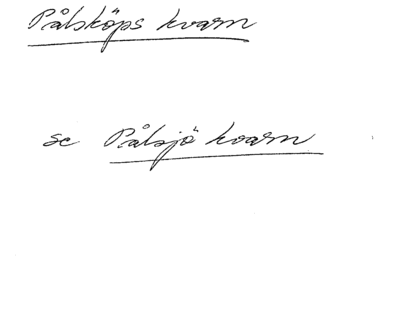 Pålsköps kvarn
se Pålsjö kvarn